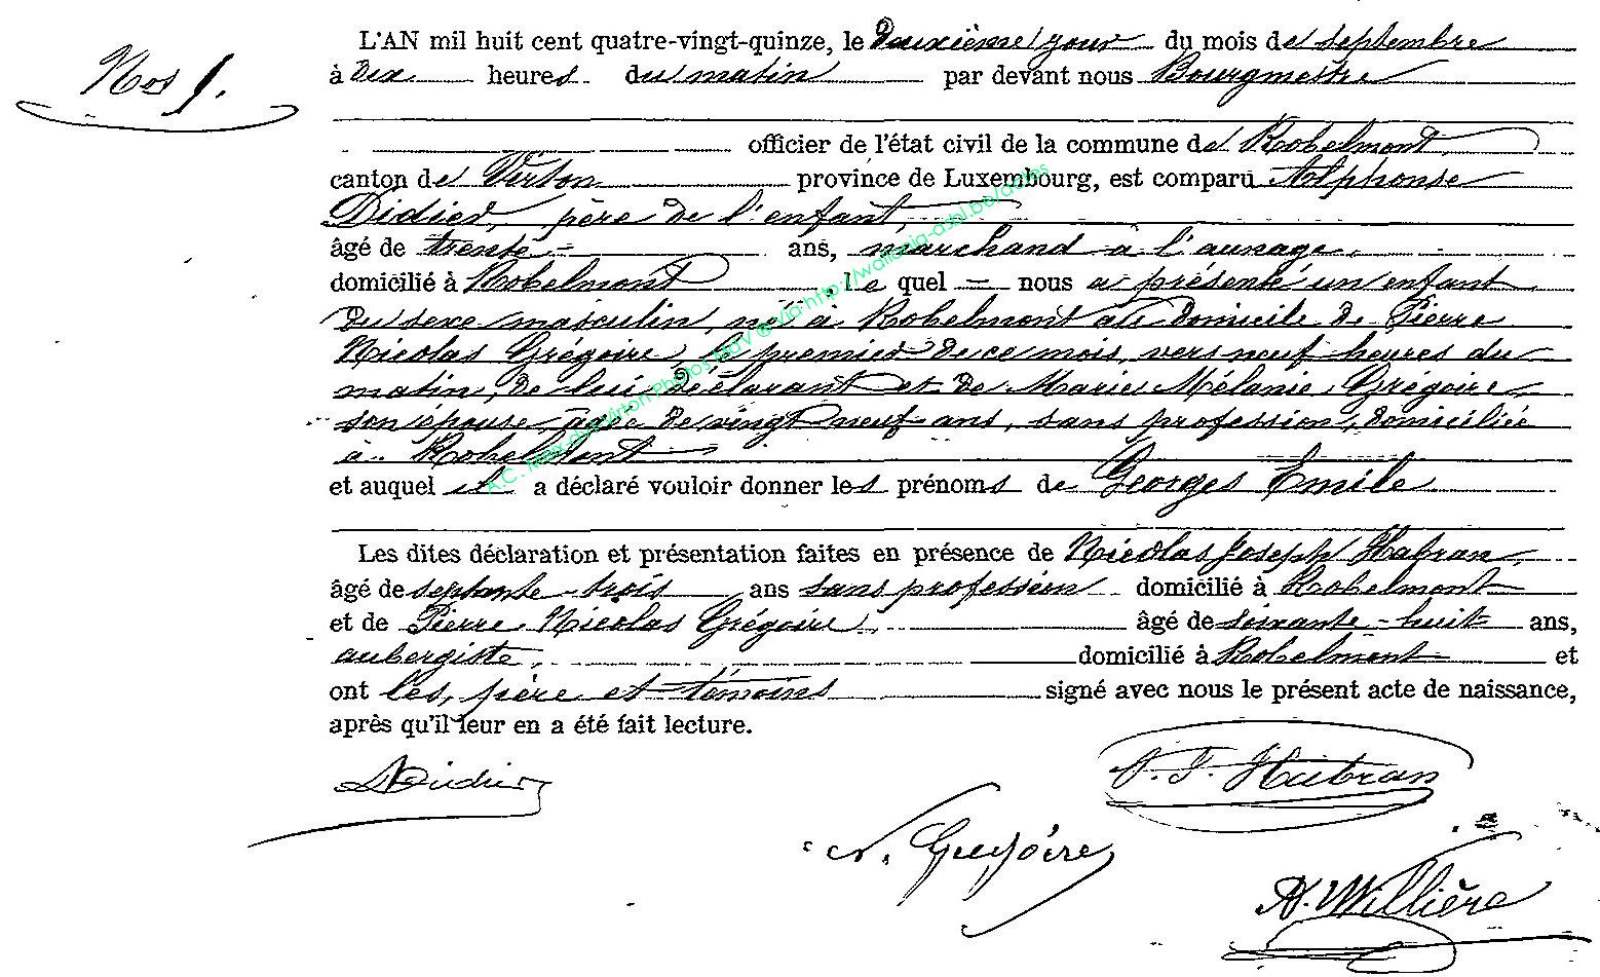 Nos 1.
L'AN mil huit cent quatre-vingt-quinze, le Deuxième jour du mois de septembre
à Dix heures du matin par devant nous Bourgmestre
officier de l'état civil de la commune de Robelmont
canton de Virton province de Luxembourg, est comparu Alphonse
Didier, père de l'enfant,
âgé de trente ans, marchand à l'aunage,
domicilié à Robelmont, le quel nous a présenté un enfant
du sexe masculin, né à Robelmont au domicile de Pierre
Nicolas Grégoire, le premier de ce mois, vers neuf heures du
matin, de lui déclarant et de Marie Mélanie Grégoire,
son épouse, âgée de vingt neuf ans, sans profession, domiciliée
à Robelmont
et auquel il a déclaré vouloir donner les prénoms de Georges Emile
Les dites déclaration et présentation faites en présence de Nicolas Joseph Habran,
âgé de septante-trois ans sans profession domicilié à Robelmont
et de Pierre Nicolas Grégoire, âgé de soixante-huit ans,
aubergiste, domicilié à Robelmont et
ont les, père et témoins signé avec nous le présent acte de naissance,
après qu'il leur en a été fait lecture.
ADidier
N. J. Habran
N. Grégoire
A. Willière
A.C. Max d'après Arton Photos MdV @ via http://wallonia-asbl.be/actes